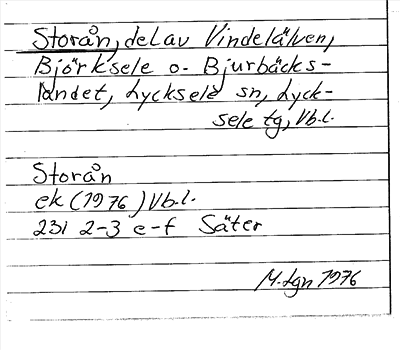 Storån, del av Vindelälven,
Björksele o. Bjurbäcks-
landet, Lycksele sn, Lyck-
sele tg, Vb.l.
Storån
ek (1976) Vb.l.
23I 2-3 e-f Säter
M. Lgn 1976